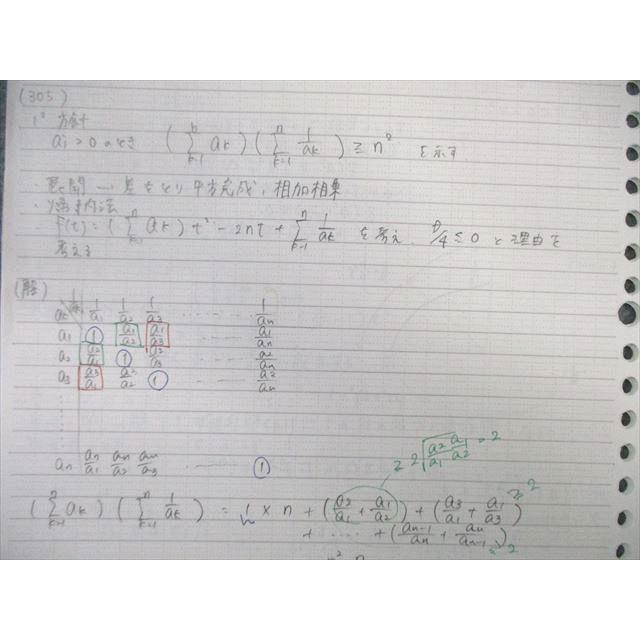 (305)
1° 方針
ai > 0 のとき (Σ_{k=1}^{n} ak)(Σ_{k=1}^{n} 1/ak) ≧ n² を示す
・展開 … 差をとり平方完成, 相加相乗
・帰納法
f(t) = (Σ_{k=1}^{n} ak)t² - 2nt + Σ_{k=1}^{n} 1/ak を考え, D/4 ≦ 0 を理由を
考える
(解)
ak 1/ak 1/a1 1/a2 1/a3 …… 1/an
a1 ① a1/a2 a1/a3 …… a1/an
a2 a2/a1 ① a2/a3 …… a2/an
a3 a3/a1 a3/a2 ① …… a3/an
an an/a1 an/a2 an/a3 …… ①
≧ 2√(a2/a1 a1/a2) = 2
(Σ_{k=1}^{n} ak)(Σ_{k=1}^{n} 1/ak) = 1 × n + (a2/a1 + a1/a2) + (a3/a1 + a1/a3) ≧ 2
+ …… + (an-1/an + an/an-1) ≧ 2